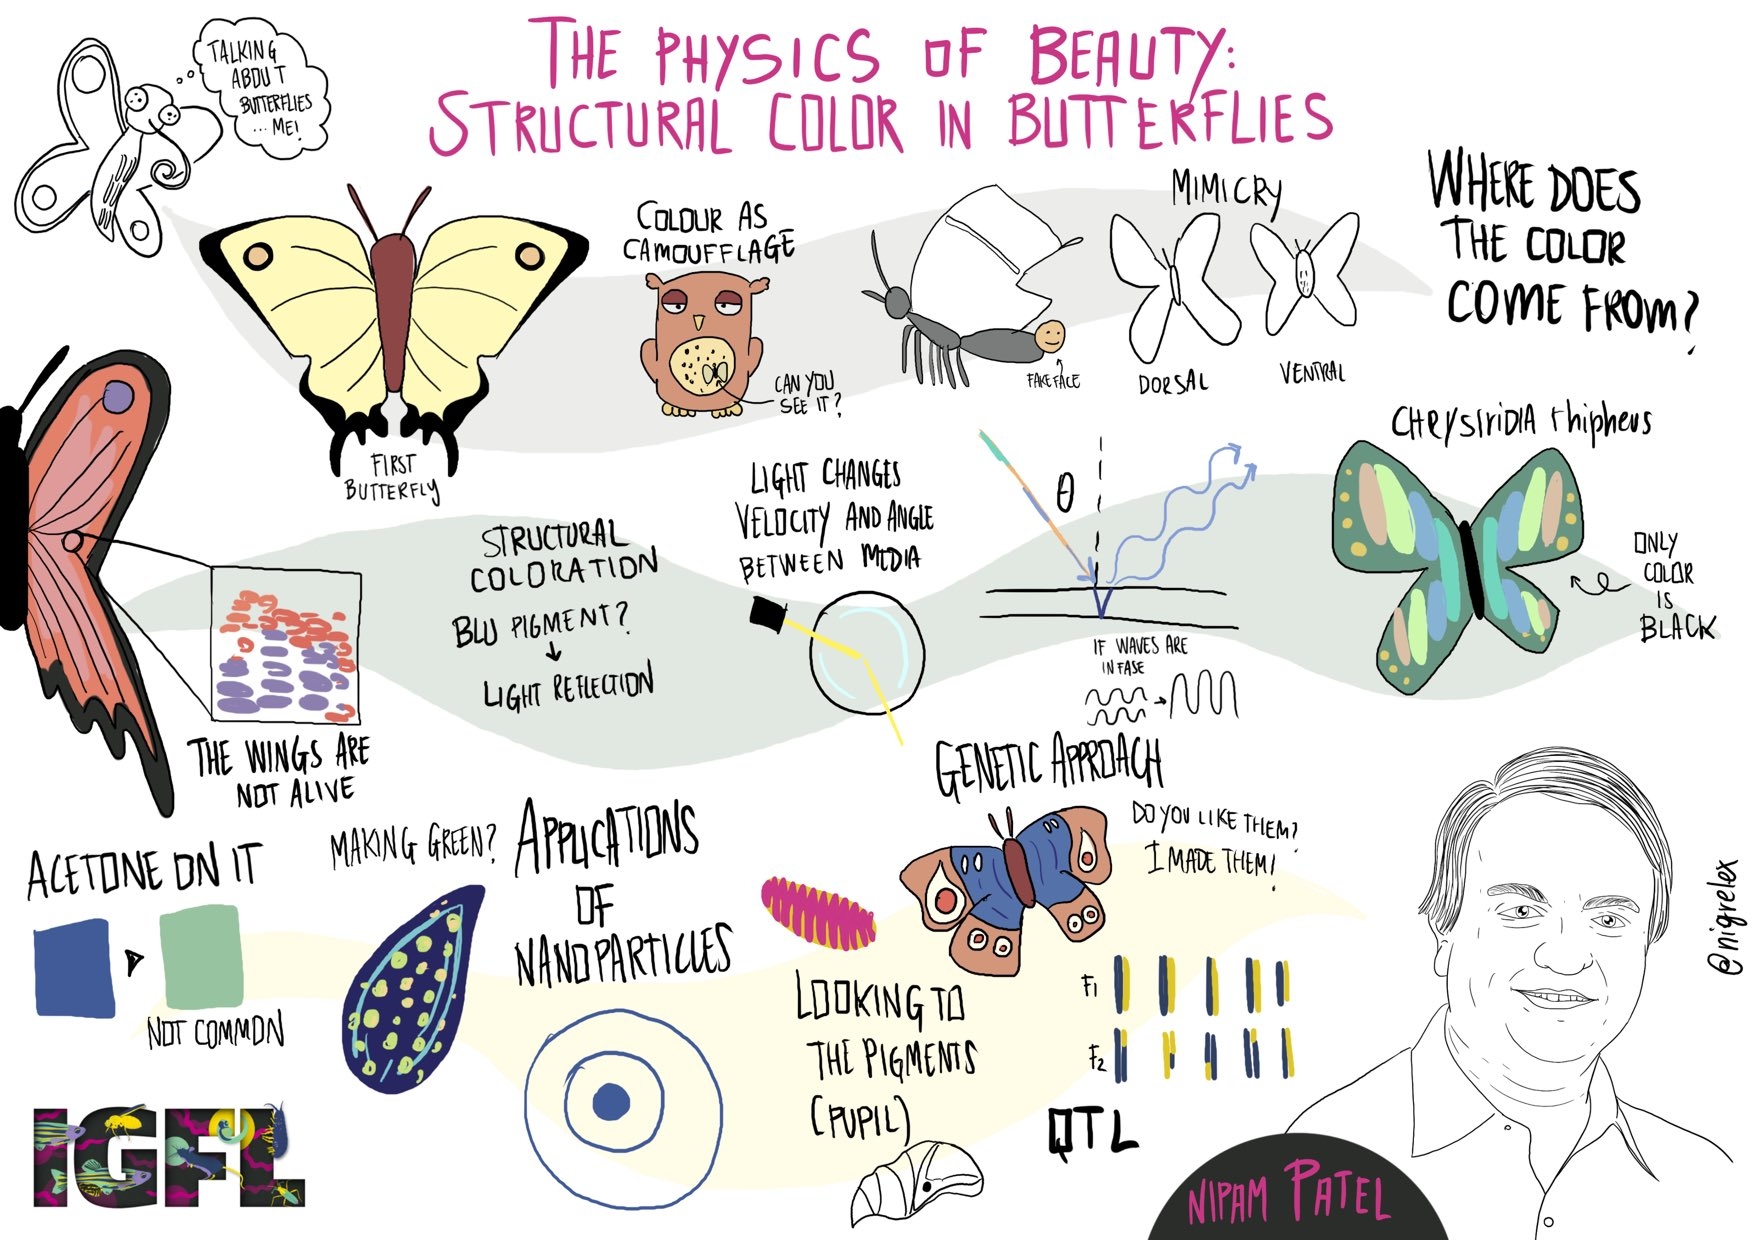 THE PHYSICS OF BEAUTY:
STRUCTURAL COLOR IN BUTTERFLIES
TALKING
ABOUT
BUTTERFLIES
... ME!
FIRST
BUTTERFLY
COLOUR AS
CAMOUFFLAGE
CAN YOU
SEE IT?
FAKE FACE
MIMICRY
DORSAL
VENTRAL
WHERE DOES
THE COLOR
COME FROM?
THE WINGS ARE
NOT ALIVE
STRUCTURAL
COLORATION
BLU PIGMENT?
LIGHT REFLECTION
LIGHT CHANGES
VELOCITY AND ANGLE
BETWEEN MEDIA
θ
IF WAVES ARE
IN FASE
CHRYSIRIDIA rhipheus
ONLY
COLOR
IS
BLACK
ACETONE ON IT
NOT COMMON
MAKING GREEN?
APPLICATIONS
OF
NANOPARTICLES
GENETIC APPROACH
DO YOU LIKE THEM?
I MADE THEM!
LOOKING TO
THE PIGMENTS
(PUPIL)
F1
F2
QTL
@nigrelex
NIPAM PATEL
IGFL